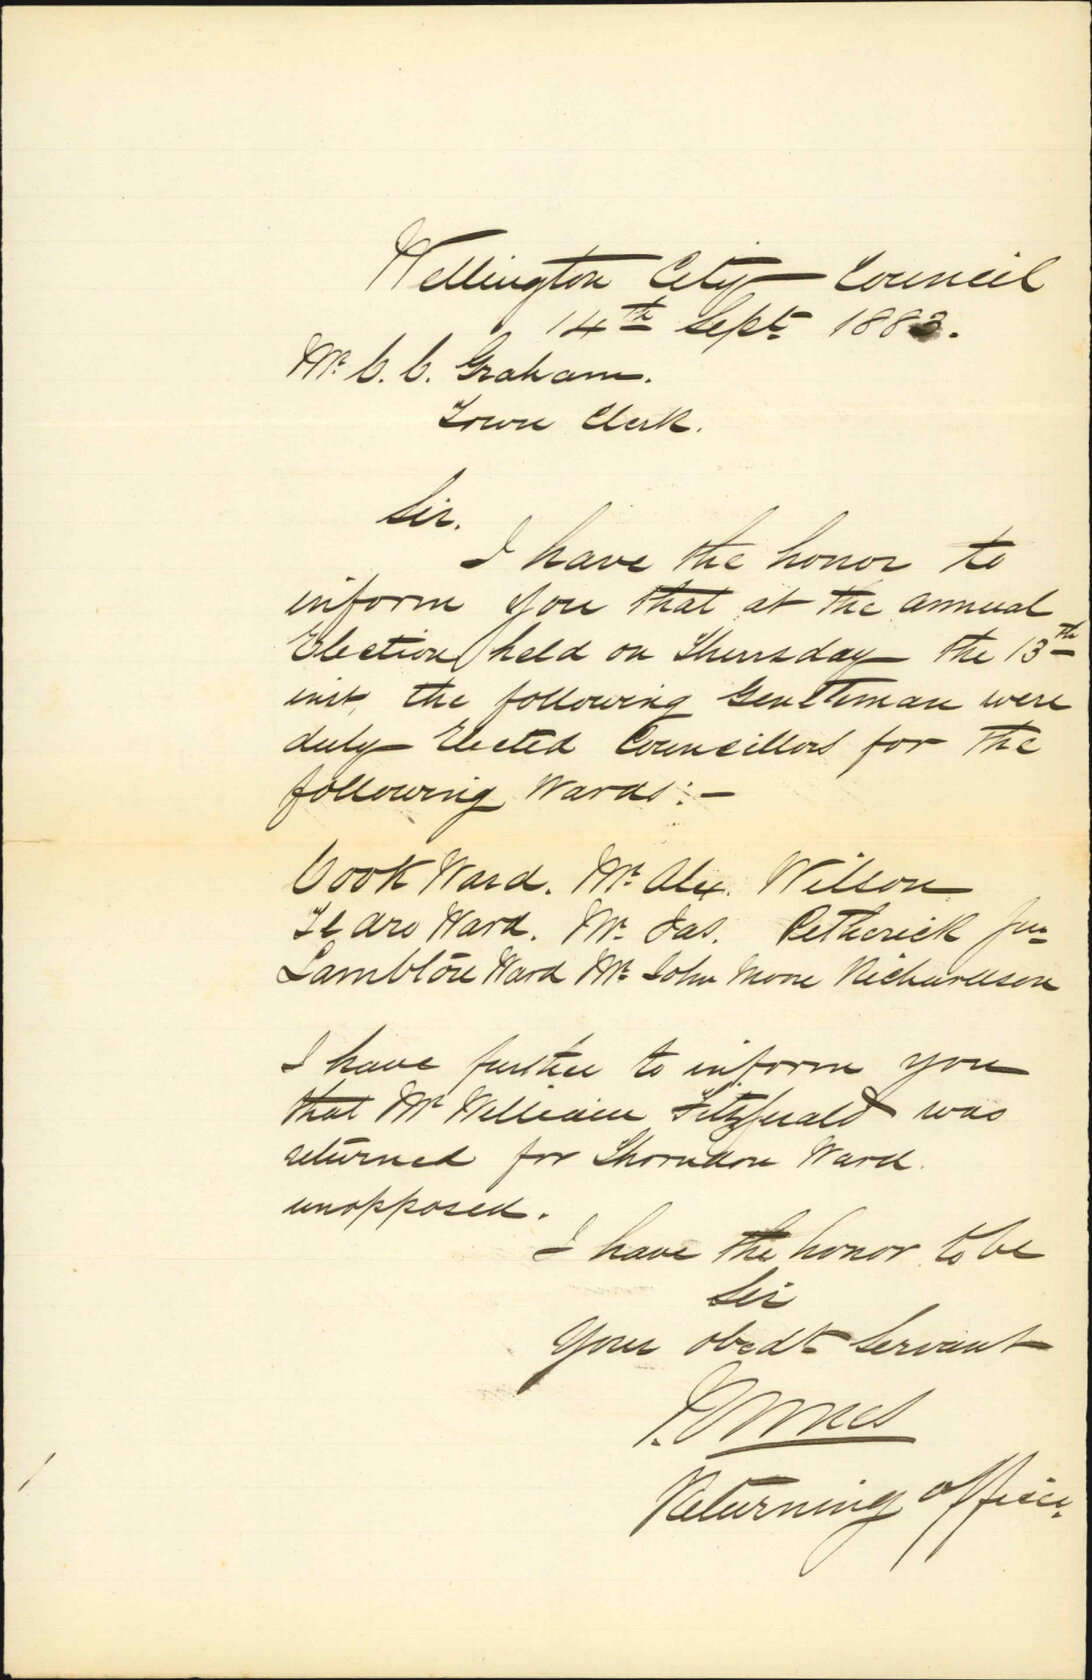 Wellington City Council
14th Sept 1883.
Mr. C. C. Graham.
Town Clerk.
Sir.
I have the honor to
inform you that at the annual
Election held on Thursday the 13th
inst, the following Gentleman were
duly Elected Councillors for the
following Wards:-
Cook Ward. Mr. Alex. Wilson
Te Aro Ward. Mr. Jas. Petherick Jun
Lambton Ward Mr. John Moore Richardson
I have further to inform you
that Mr William Fitzgerald was
returned for Thorndon Ward
unopposed.
I have the honor to be
Sir
Your obedt Servant
Returning Officer.